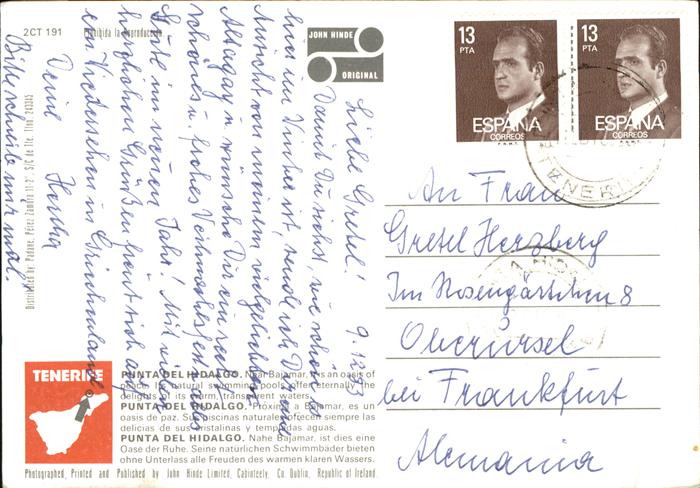 2CT 191
Prohibida la reproducción
JOHN HINDE
ORIGINAL
13
PTA
ESPAÑA
CORREOS
13
PTA
ESPAÑA
CORREOS
TENERIFE
9.12.83
Liebe Gretel!
Damit Du siehst, wie schön es
hier im Winter ist, send ich Dir eine
Ansicht von meinem vielgeliebten
Altagay u. wünsche Dir ein recht
schönes u. frohes Weihnachtsfest u. alles
Gute im neuen Jahr! Mit vielen
herzlichen Grüßen freut sich auf
ein Wiedersehen in Griechenland
Deine Hertha
Bitte schreibe mir mal.
An Frau
Gretel Herzberg
Im Rosengärtchen 8
Oberursel
bei Frankfurt
Alemania
Distributed by
TENERIFE
PUNTA DEL HIDALGO. Near Bajamar, is an oasis of
peace. Its natural swimming pools offer eternally the
delights of its warm, transparent waters.
PUNTA DEL HIDALGO. Próximo a Bajamar, es un
oasis de paz. Sus piscinas naturales ofrecen siempre las
delicias de sus cristalinas y templadas aguas.
PUNTA DEL HIDALGO. Nahe Bajamar, ist dies eine
Oase der Ruhe. Seine natürlichen Schwimmbäder bieten
ohne Unterlass alle Freuden des warmen klaren Wassers.
Photographed, Printed and Published by John Hinde Limited, Cabinteely, Co. Dublin, Republic of Ireland.